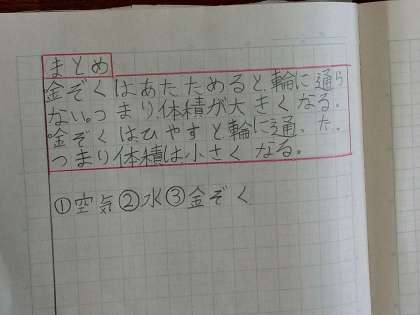 まとめ
金ぞくはあたためると、輪に通ら
ない。つまり、体積が大きくなる。
金ぞくはひやすと輪に通った。
つまり体積は小さくなる。
①空気②水③金ぞく